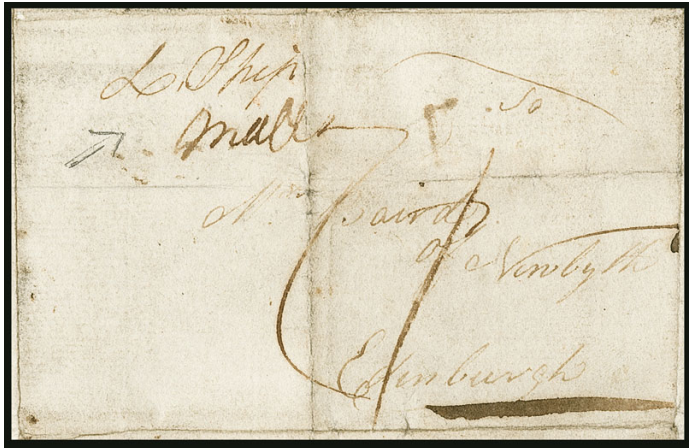 Ship
So
Mrs Baird
of Newbyth
Edinburgh